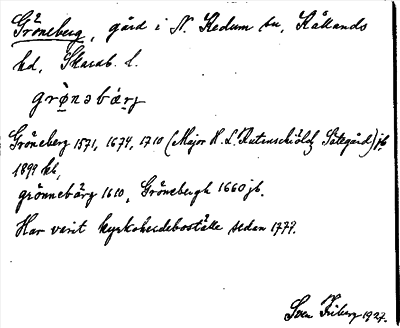 Gröneberg, gård i N. Kedum sn, Kållands
hd, Skarab. l.
grö̱nəbæṟj
Gröneberg 1571, 1674, 1710 (Major H. L. Rutenschiölds Sätegård) jb,
1899 kb,
grönnebärg 1610, Grönebergh 1660 jb.
Har varit kyrkoherdeboställe sedan 1779.
Sven Friberg 1927.